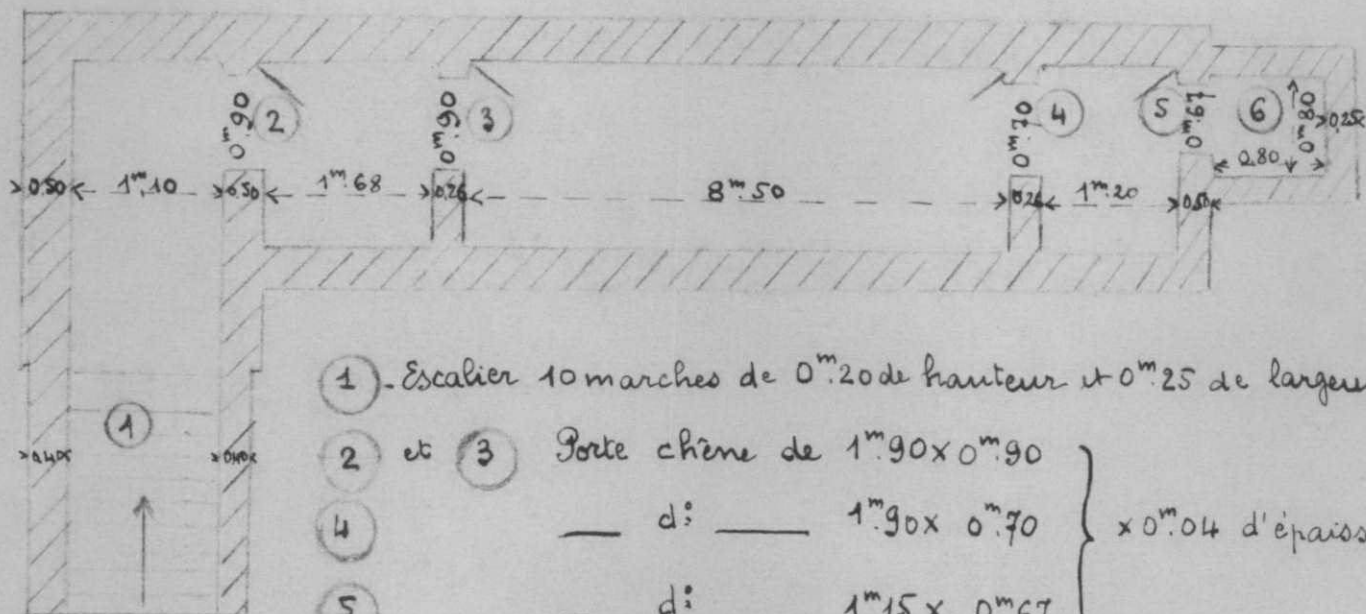 0m.90 2 0m.90 3 0m.70 4 5 0m.67 6 0m.80 0,25
0.50 1m.10 0.50 1m.68 0.26 8m.50 0.26 1m.20 0.50 0.80
1 0.40 0.40
1 - Escalier 10 marches de 0m.20 de hauteur et 0m.25 de largeu
2 et 3 Porte chêne de 1m.90 x 0m.90
4 — d: — 1m.90 x 0m.70 x 0m.04 d'épaiss
5 d: 1m15 x 0m67